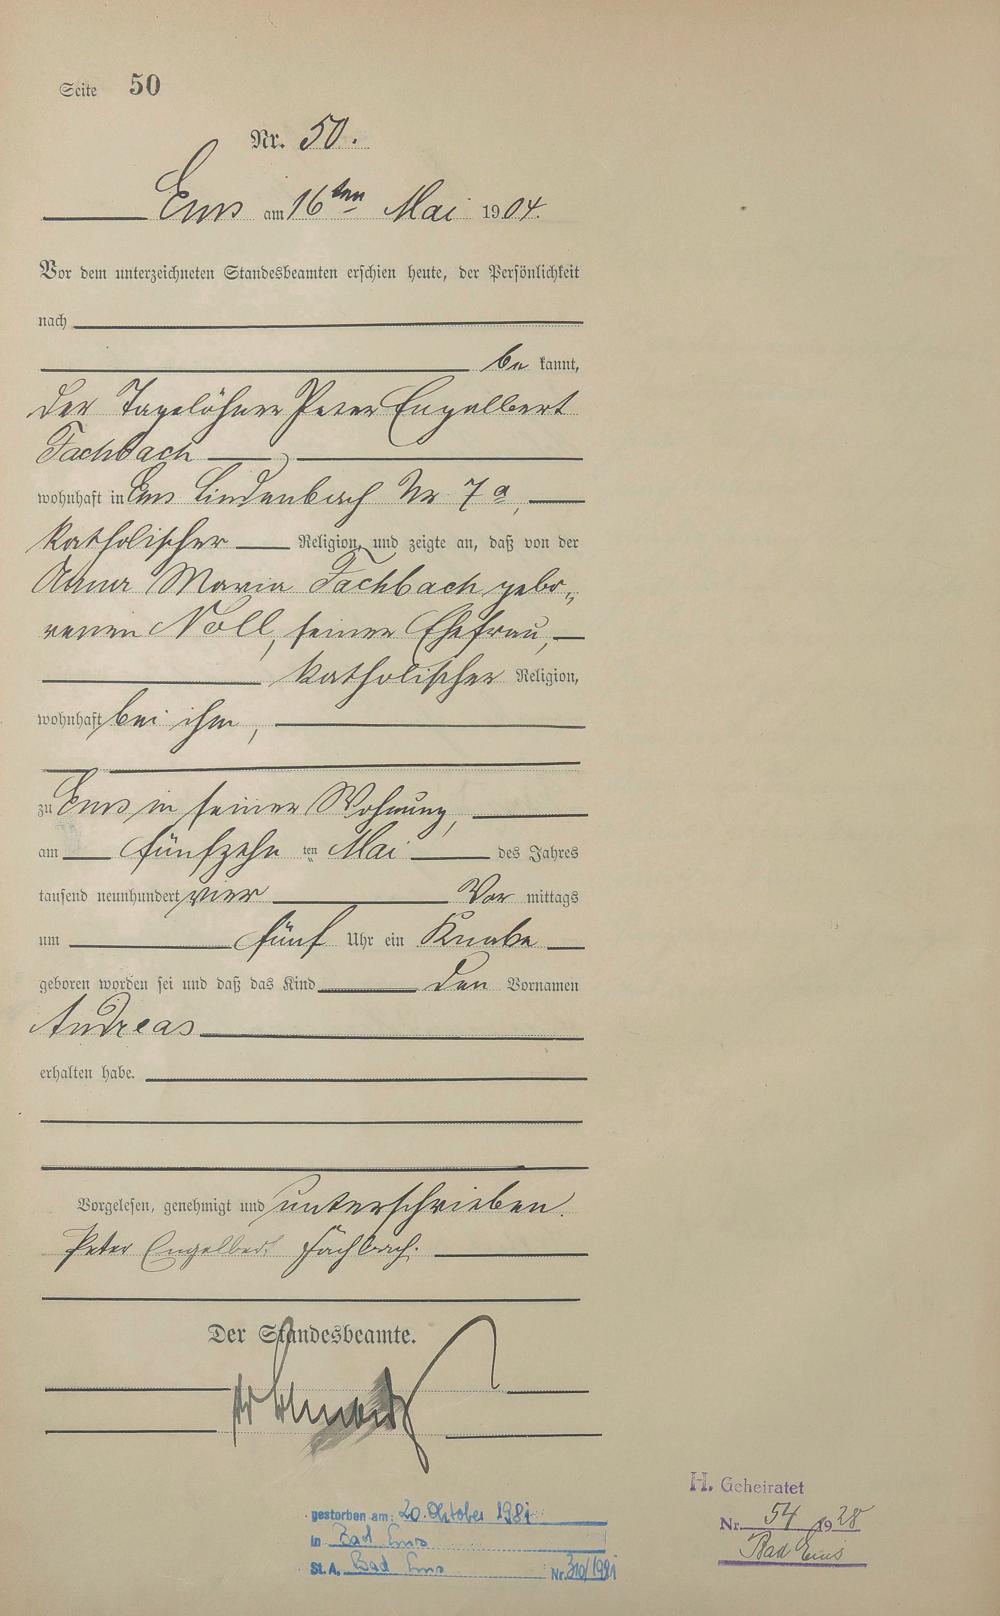 Seite 50
Nr. 50.
Ems am 16ten Mai 1904.
Vor dem unterzeichneten Standesbeamten erschien heute, der Persönlichkeit
nach
be kannt,
der Tagelöhner Peter Engelbert
Fachbach,
wohnhaft in Ems Lindenbach Nr 7a,
katholischer Religion, und zeigte an, daß von der
Anna Maria Fachbach gebo„
renen Noll, seiner Ehefrau,
katholischer Religion,
wohnhaft bei ihm,
zu Ems in seiner Wohnung,
am fünfzehn ten Mai des Jahres
tausend neunhundert vier Vor mittags
um fünf Uhr ein Knabe
geboren worden sei und daß das Kind den Vornamen
Andreas
erhalten habe.
Vorgelesen, genehmigt und unterschrieben.
Peter Engelbert Fachbach.
Der Standesbeamte.
H. Geheiratet
Nr. 54 1928
Bad Ems
gestorben am: 20. Oktober 1981
in Bad Ems
St.A. Bad Ems Nr. 310/1981